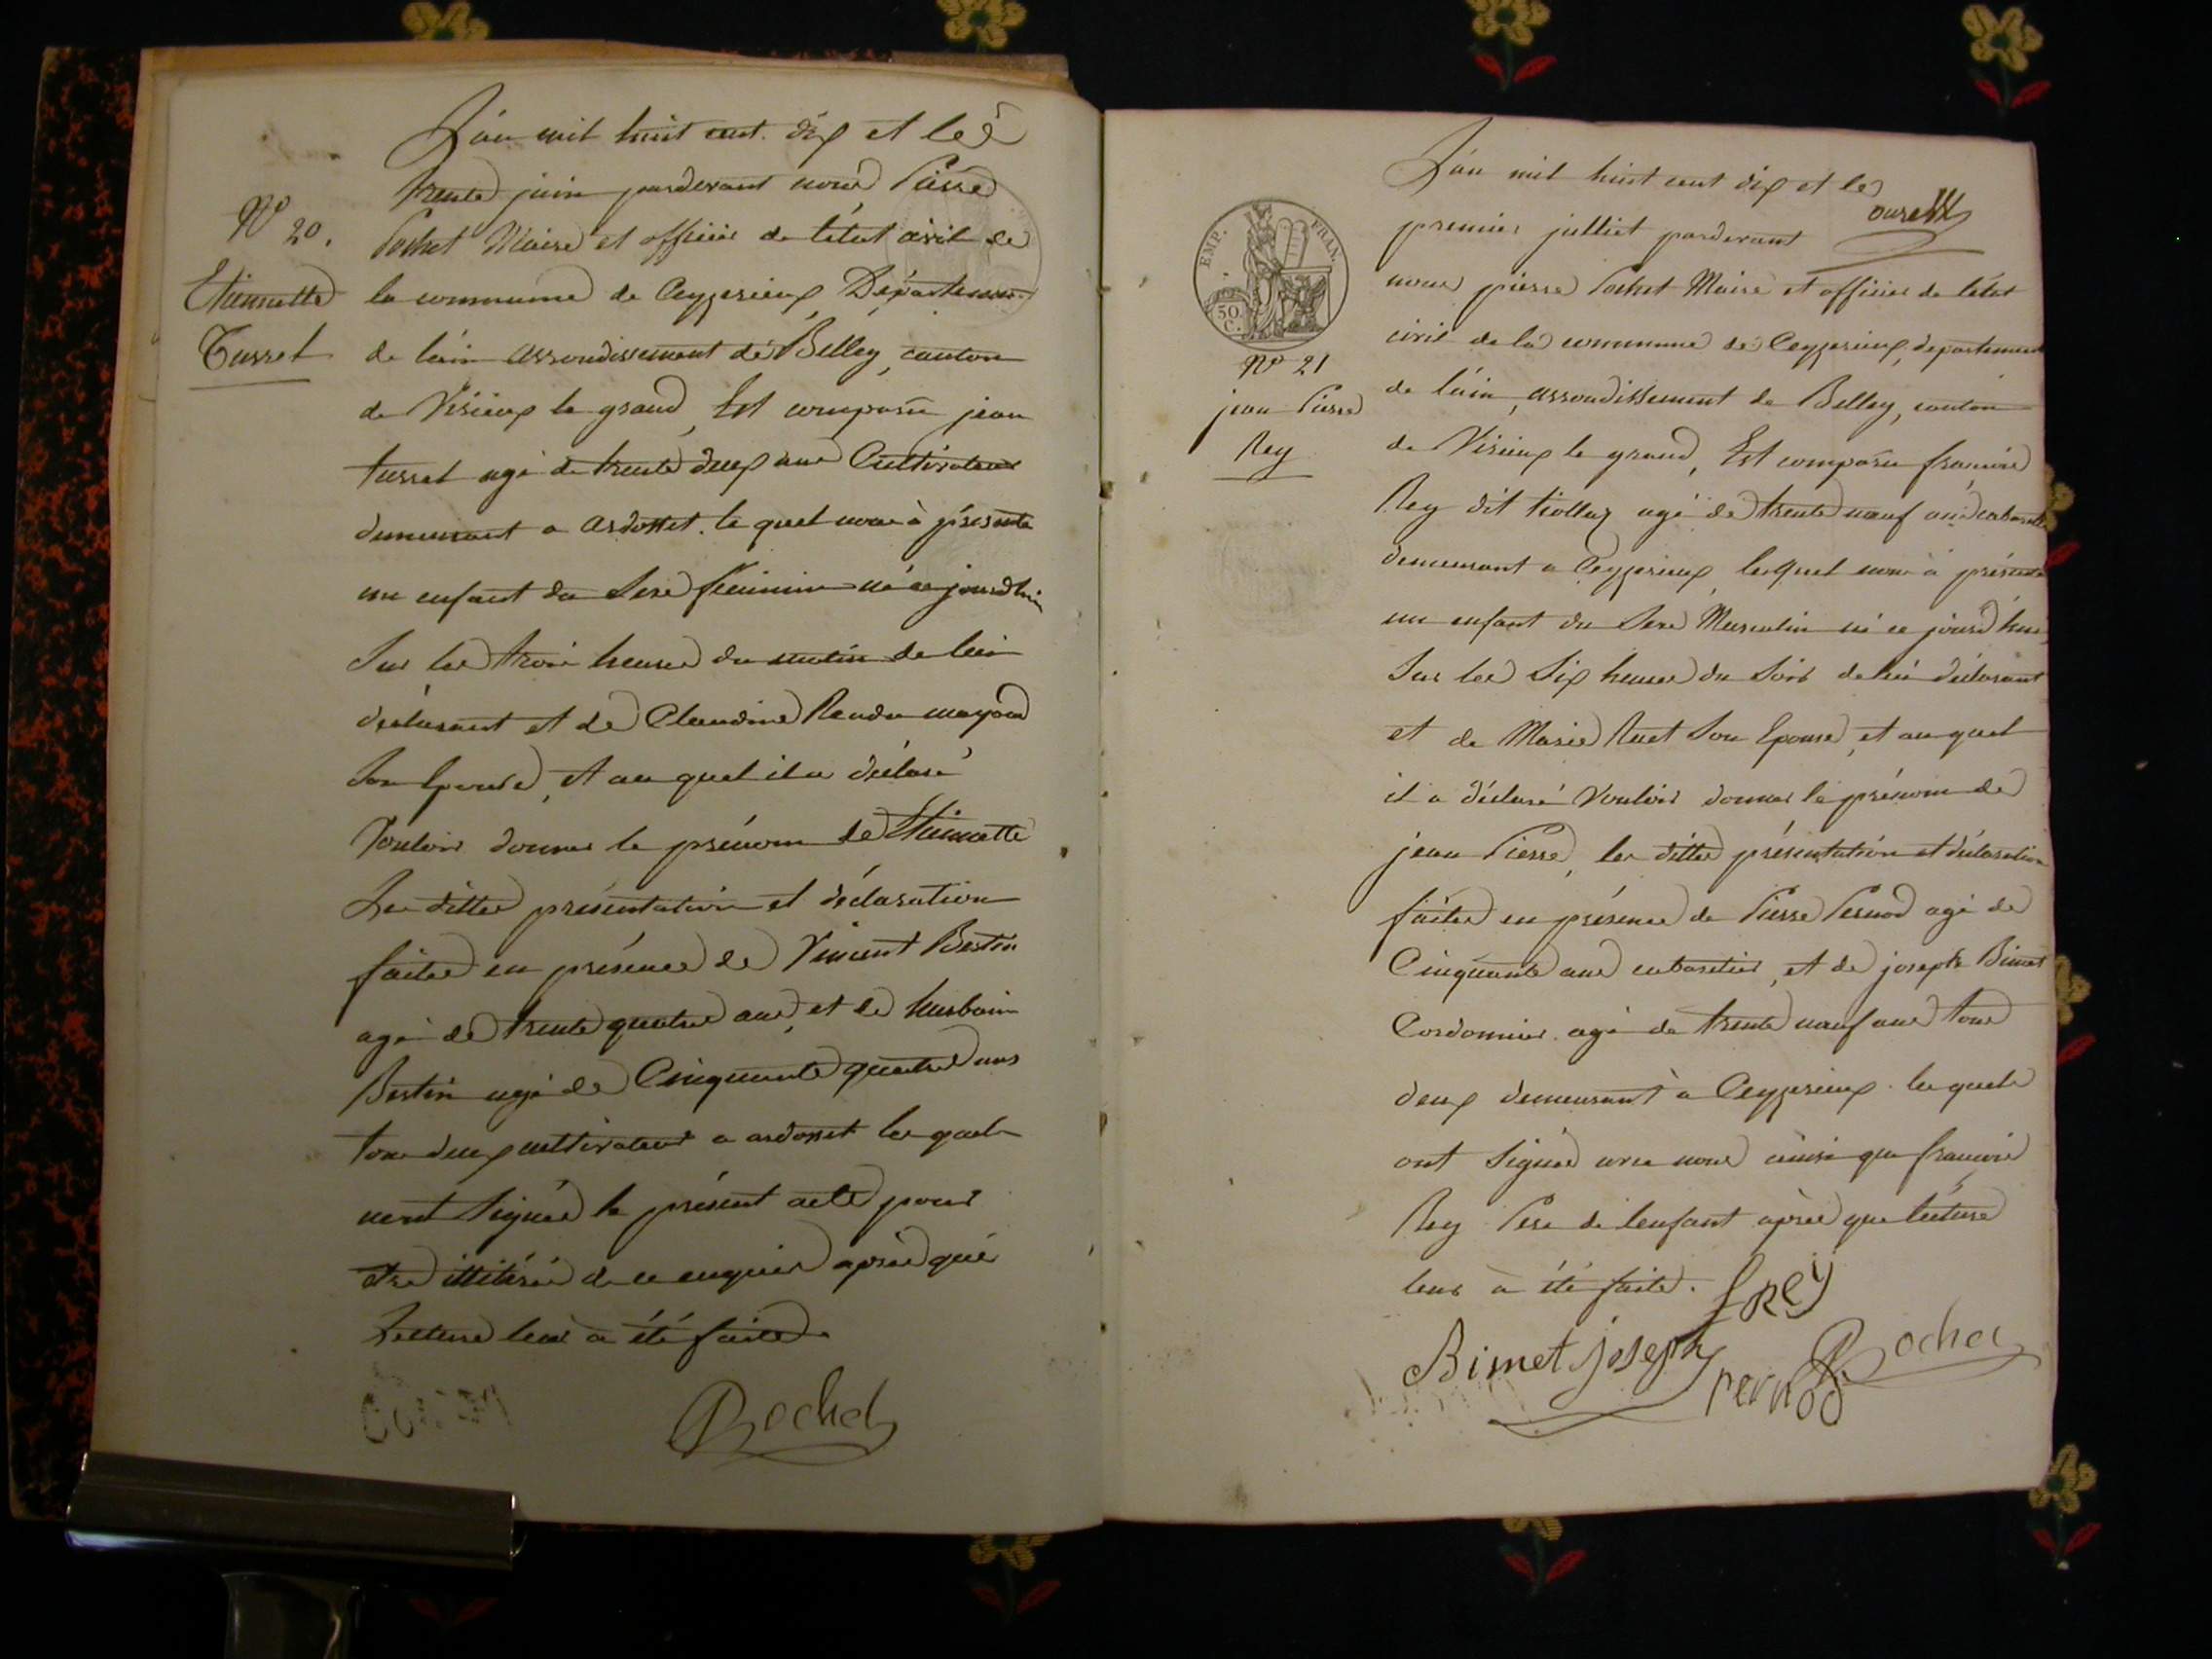 L'an mil huit cent dix et le
trente juin pardevant nous Pierre
Pochet Maire et officier de l'état civil de
la commune de Ceyzerieux, Département
de l'ain arrondissement de Belley, canton
de Virieux le grand, Est comparu jean
tusset agé de trente deux ans Cultivateur
demeurant a ardosset. le quel nous à présenté
un enfant du Sexe féminin né ce jourd'hui
Sur les trois heures du matin de lui
déclarant et de Claudine
Son Epouse, et au quel il a déclaré
Vouloir donner le prénom de Etiennette
Les dittes présentation et déclaration
faites en présence de Vincent Bertin
agé de trente quatre ans, et de hurbain
Bertin agé de Cinquante quatre ans
tous deux cultivateurs a ardosset les quels
nont Signés le présent acte pour
etre illitérés de ce enquis après que
Lecture leur à été faite.
Pochet
N° 20.
Etiennette
Tusset
L'an mil huit cent dix et le
premier julliet pardevant
nous pierre Pochet Maire et officier de l'état
civil de la commune de Ceyzerieux, departement
de l'ain, arrondissement de Belley, canton
de Virieux le grand, Est comparu francois
Rey dit agé de trente nauf ans
demeurant a Ceyzerieux, lequel nous à présenté
un enfant du Sexe Masculin né ce jourd'hui
Sur les Six heures du Soir de lui déclarant
et de Marie Ruet Son Epouse, et au quel
il a déclaré Vouloir donner le prénom de
jean Pierre, les dittes présentation et déclaration
faites en présence de Pierre Pernod agé de
Cinquante ans cabaretier, et de joseph Bimet
Cordonnier agé de trente nauf ans tous
deux demeurant à Ceyzerieux les quels
ont Signés avec nous ainsi que francois
Rey Pere de lenfant après que lecture
leur à été faite.
f Rey
Bimet joseph
Pochet
pernod
EMP. FRAN.
50
C.
N° 21
jean Pierre
Rey